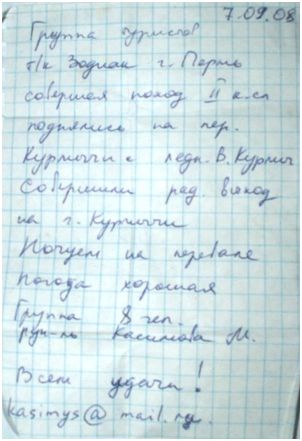 7.09.08
Группа туристов
т/к Зодиак г. Пермь
совершая поход II к.сл
поднялись на пер.
Курмычи с ледн. В. Курмыч
Совершили рад. выход
на г. Курмычи
Ночуем на перевале
Погода хорошая
Группа 8 чел.
рук-ль Касимова М.
Всем удачи!
kasimys@mail.ru.